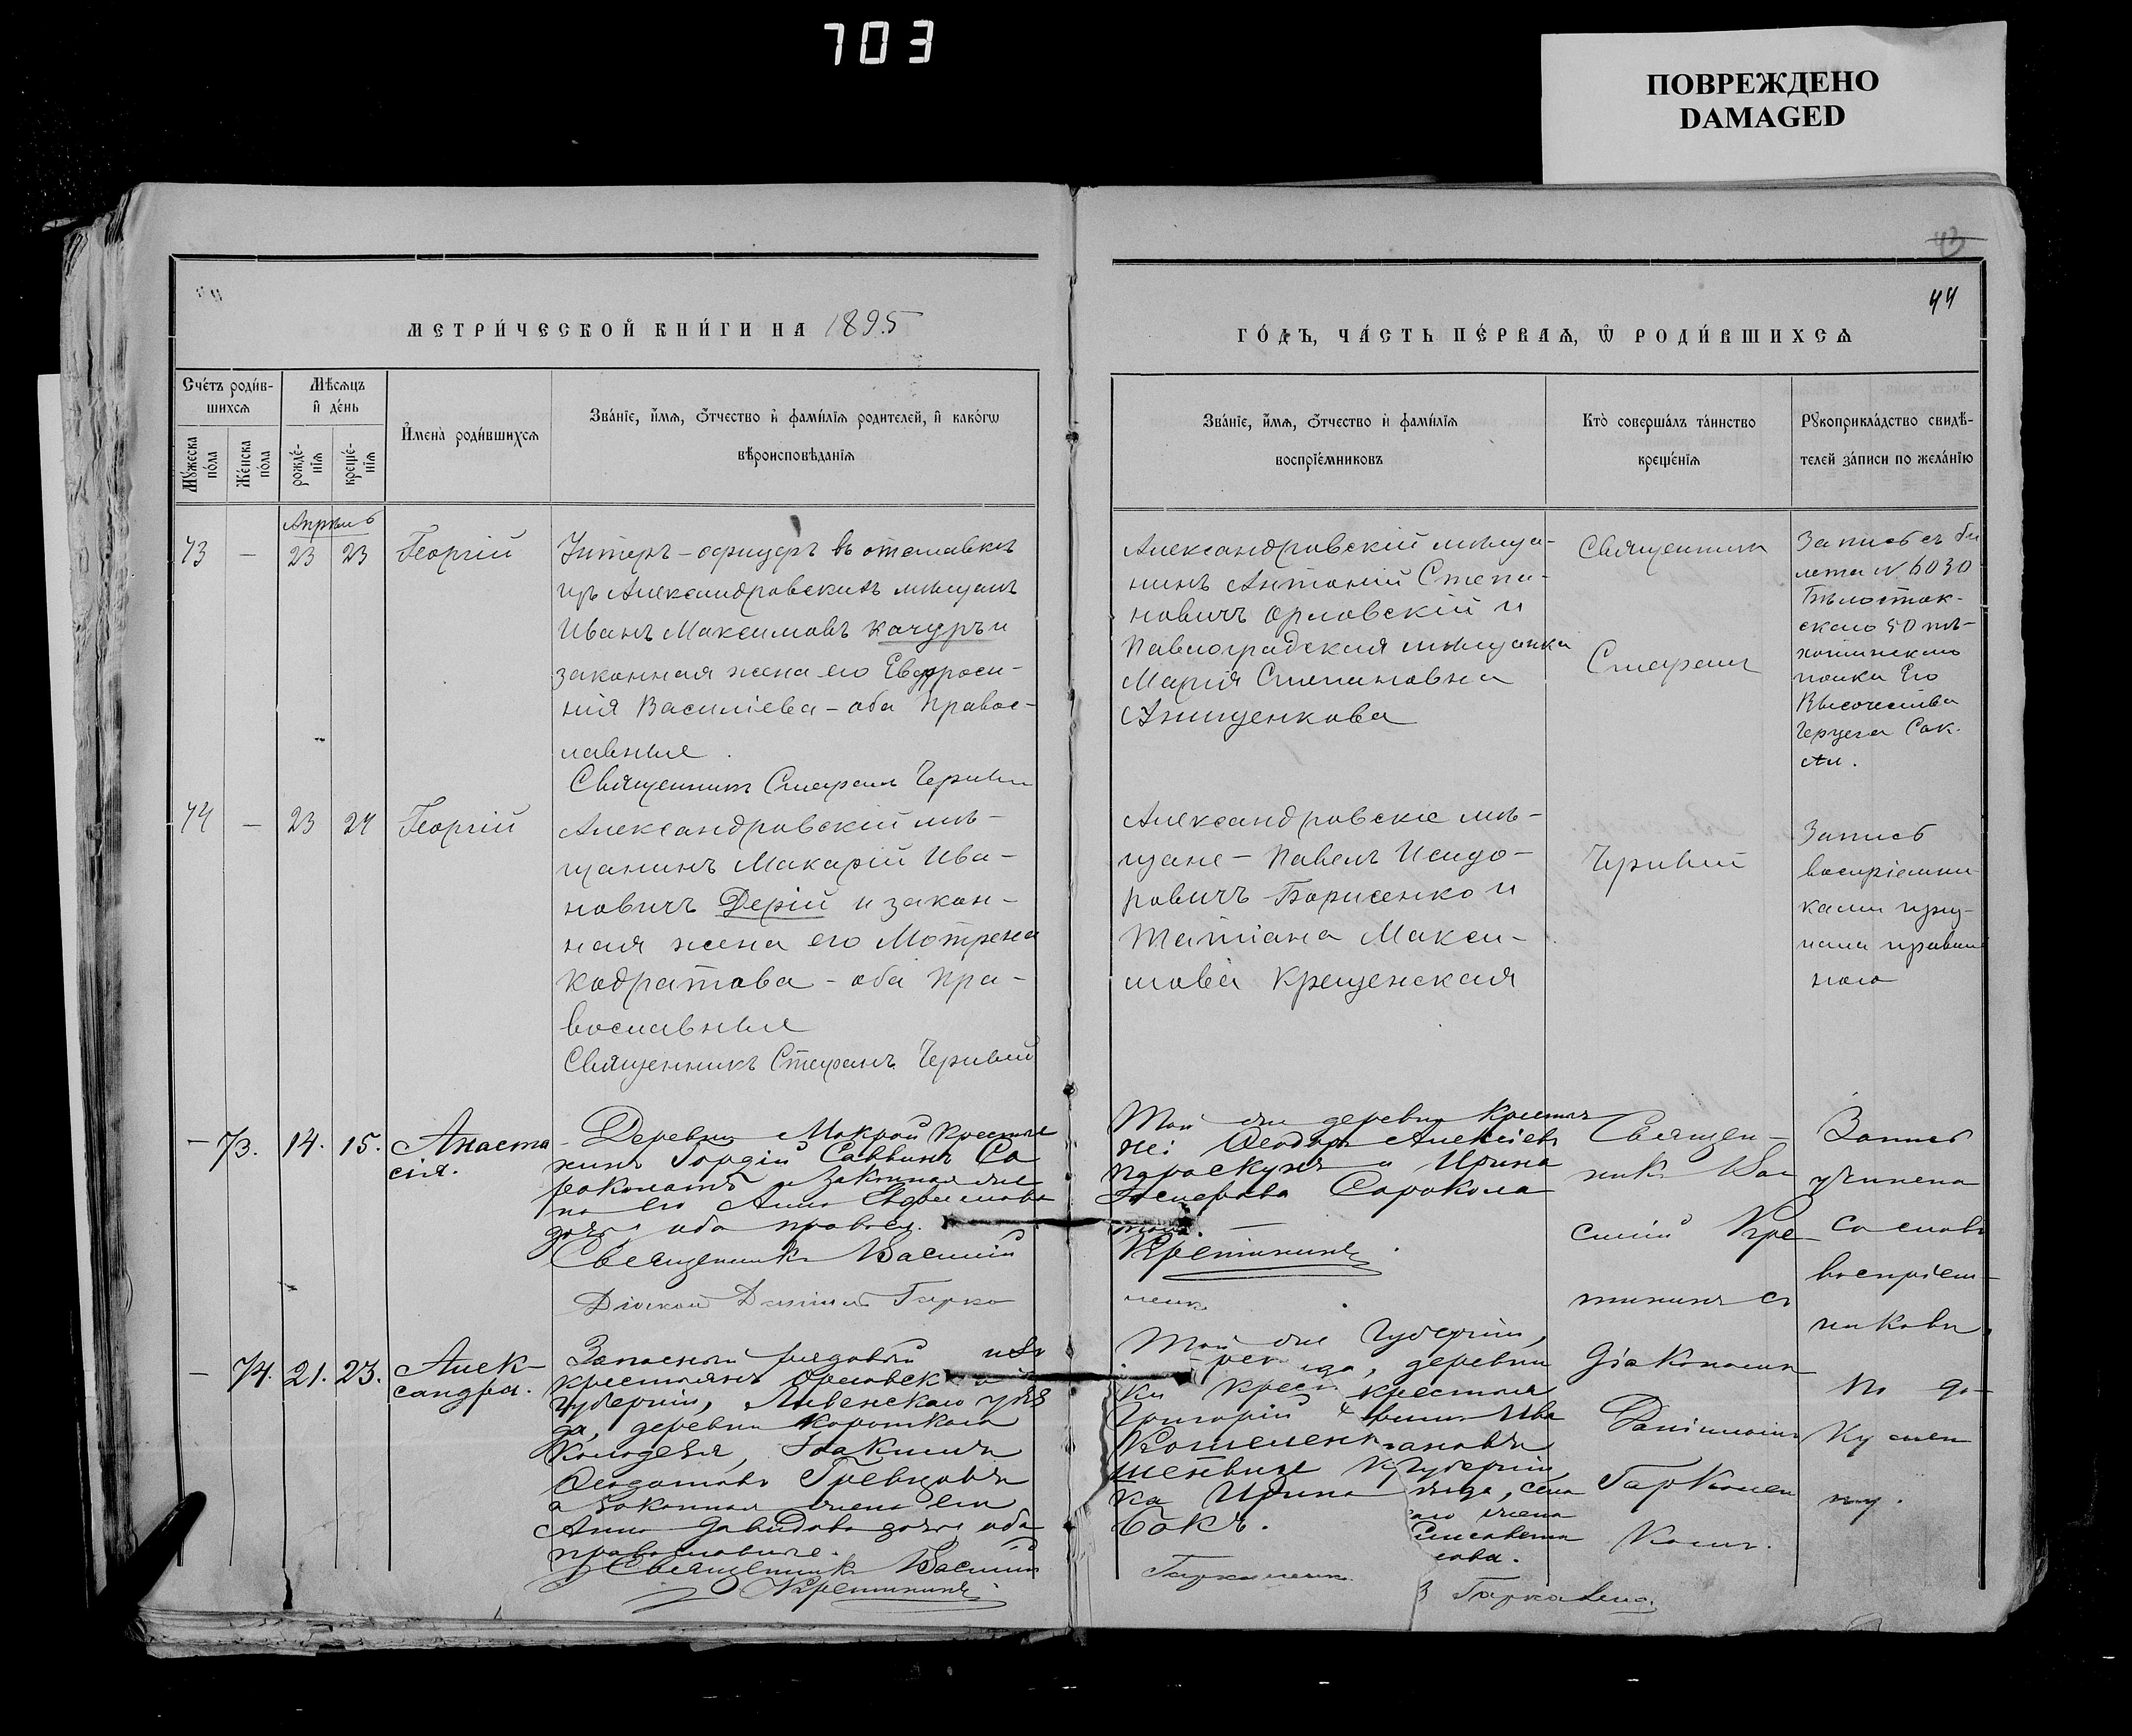 703
ПОВРЕЖДЕНО
DAMAGED
43
44
МЕТРИ́ЧЕСКОЙ КНИ́ГИ НА 1895
ГО́ДЪ, ЧА́СТЬ ПЕ́РВАѦ, Ѡ҆ РОДИ́ВШИХСѦ
Сче́тъ роди́в-
шихсѧ
Мꙋ́жеска по́ла
Же́нска по́ла
Мѣ́сѧцъ
и҆ де́нь
рожде́-
нїѧ
креще́-
нїѧ
И҆мена̀ роди́вшихсѧ
Зва́нїе, и҆́мѧ, ѻ҆́тчество и҆ фами́лїѧ родителей, и҆ како́гѡ
вѣроисповѣ́данїѧ
Зва́нїе, и҆́мѧ, ѻ҆́тчество и҆ фами́лїѧ
воспрїе́мниковъ
Кто̀ соверша́лъ та́инство
креще́нїѧ
Рꙋкоприкла́дство свидѣ́-
телей за́писи по жела́нїю
Апрѣль
73 — 23 23 Георгій
Унтеръ-офицеръ въ отставкѣ
изъ Александровскихъ мѣщанъ
Иванъ Максимовъ Качуръ и
законная жена его Евфроси-
нія Василіева - оба правос-
лавные.
Священникъ Стефанъ Чериви
Александровскій мѣща-
нинъ Антоній Степа-
новичъ Орловскій и
Павлоградская мѣщанка
Марія Степановна
Анищенкова
Священникъ
Стефанъ
Запись съ би
лета N 6030
Бѣлосток-
скаго 50 пѣ-
хотнаго
полка Его
Высочества
Герцога Сак.
Ал.
74 — 23 24 Георгій
Александровскій мѣ-
щанинъ Макарій Ива-
новичъ Дерій и закон-
ная жена его Мотрона
Кодратова - оба пра-
вославные
Священникъ Стефанъ Черивий
Александровскіе мѣ-
щане - Павелъ Исидо-
ровичъ Борисенко и
Татіана Макси-
мова Крещенская
Черивий
Запись
воспріемни-
ками приз-
нана правиль
ною
— 73. 14. 15. Анаста
сія.
Деревни Мокрой крестья
нинъ Гордій Саввинъ Со
роколатъ и законная же
на его Анна Ефимова
дочь, оба правосл.
Священникъ Василій
Діаконъ Даніилъ Гарко
Той же деревни крестья
не: Ѳеодоръ Алексіевъ
Параскунъ и Ирина
Сорокола
това. —
Кретининъ
менко
Священ-
никъ Ва
силій Кре
тининъ съ
Запись
учинена
со словъ
воспріем-
никовъ.
— 74. 21. 23. Алек-
сандра.
Запасный рядовый изъ
крестьянъ Орловск й
губерніи, Ливенскаго уѣз
да, деревни Короткаго
Колодезя, Іоакимъ
Ѳеодотовъ Гревцовъ
и законная жена его
Анна Давидова дочь, оба
православные.
Священникъ Василій
Кретининъ
Той же губерніи,
деревни
крестья
Григорій
Ирина
Бокъ.
Гаркавенко.
діакономъ
Даніиломъ
Гаркавен
комъ.
по до-
кумен
ту.